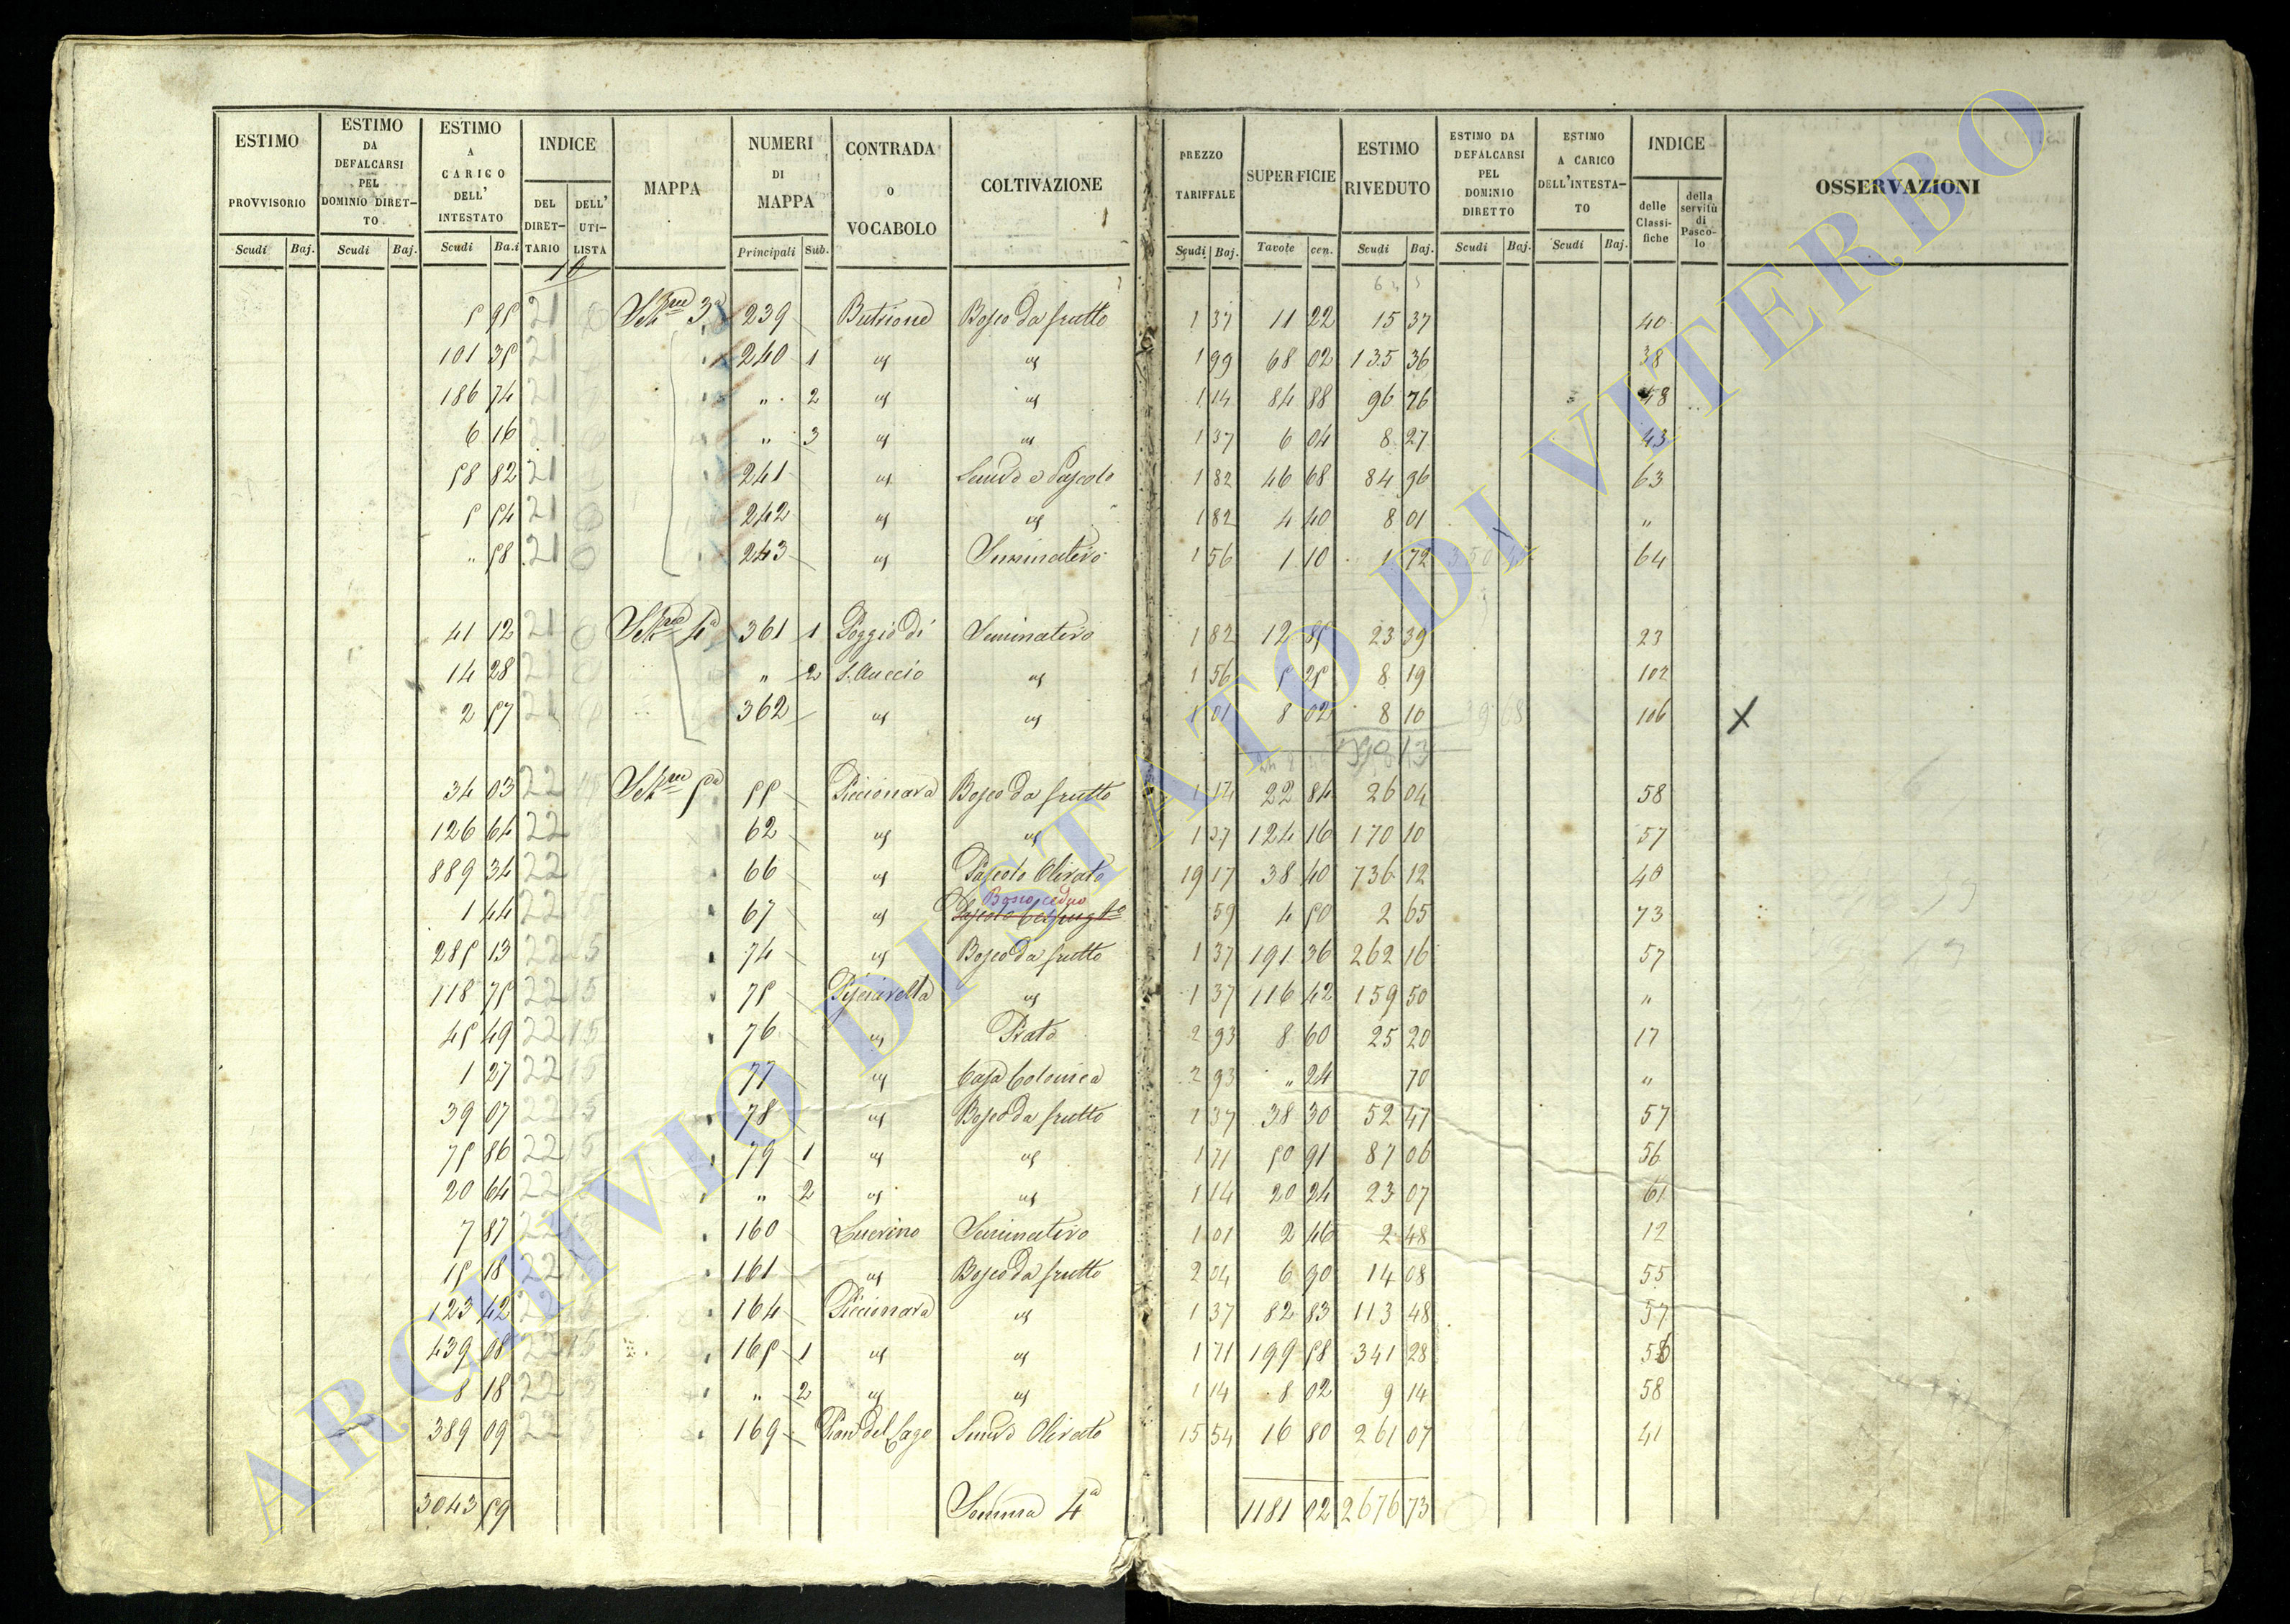 ESTIMO PROVVISORIO | ESTIMO DA DEFALCARSI PEL DOMINIO DIRET-TO | ESTIMO A CARICO DELL' INTESTATO | INDICE | MAPPA | NUMERI DI MAPPA | CONTRADA o VOCABOLO | COLTIVAZIONE | PREZZO TARIFFALE | SUPERFICIE | ESTIMO RIVEDUTO | ESTIMO DA DEFALCARSI PEL DOMINIO DIRETTO | ESTIMO A CARICO DELL'INTESTA-TO | INDICE | OSSERVAZIONI
Scudi | Baj. | Scudi | Baj. | Scudi | Ba.i | DEL DIRET-TARIO | DELL' UTI-LISTA | Principali | Sub. | Scudi | Baj. | Tavole | cen. | Scudi | Baj. | Scudi | Baj. | Scudi | Baj. | delle Classi-fiche | della servitù di Pasco-lo
10
5 95 21 0 Sez.ne 3a 239 Butrione Bosco da frutto 1 37 11 22 15 37 40
101 35 21 240 1 us us 1 99 68 02 135 36 38
186 74 21 " 2 us us 1 14 84 88 96 76 58
6 16 21 " 3 us us 1 37 6 04 8 27 43
58 82 21 241 us Semvo e Pascolo 1 82 46 68 84 96 63
5 54 21 0 242 us us 1 82 4 40 8 01 "
" 58 21 0 243 us Seminativo 1 56 1 10 1 72 64
41 12 21 0 Sez.ne 4a 361 1 Poggio di Seminativo 1 82 12 85 23 39 23
14 28 21 0 " 2 S. Auccio us 1 56 5 25 8 19 102
2 57 21 362 us us 1 01 8 02 8 10 106 X
34 03 22 Sez.ne 5a 55 Piccionara Bosco da frutto 1 14 22 84 26 04 58
126 64 22 62 us us 1 37 124 16 170 10 57
889 34 22 66 us Pascolo Olivato 19 17 38 40 736 12 40
Bosco ceduo
1 44 22 15 67 us Pascolo Cespugto 59 4 50 2 65 73
285 13 22 15 74 us Bosco da frutto 1 37 191 36 262 16 57
118 75 22 15 75 Pisciarella us 1 37 116 42 159 50 "
45 49 22 15 76 us Prato 2 93 8 60 25 20 17
1 27 22 15 77 us Casa Colonica 2 93 " 24 70 "
39 07 22 15 78 us Bosco da frutto 1 37 38 30 52 47 57
75 86 22 15 79 1 us us 1 71 50 91 87 06 56
20 64 22 " 2 us us 1 14 20 24 23 07 61
7 87 22 15 160 Lucrino Seminativo 1 01 2 46 2 48 12
15 18 22 161 us Bosco da frutto 2 04 6 90 14 08 55
123 42 22 164 Piccionara us 1 37 82 83 113 48 57
439 08 22 15 165 1 us us 1 71 199 58 341 28 56
8 18 22 " 2 us us 1 14 8 02 9 14 58
389 09 22 169 Pian del Lago Semvo Olivato 15 54 16 80 261 07 41
3043 59 Somma 4a 1181 02 2676 73
ARCHIVIO DI STATO DI VITERBO